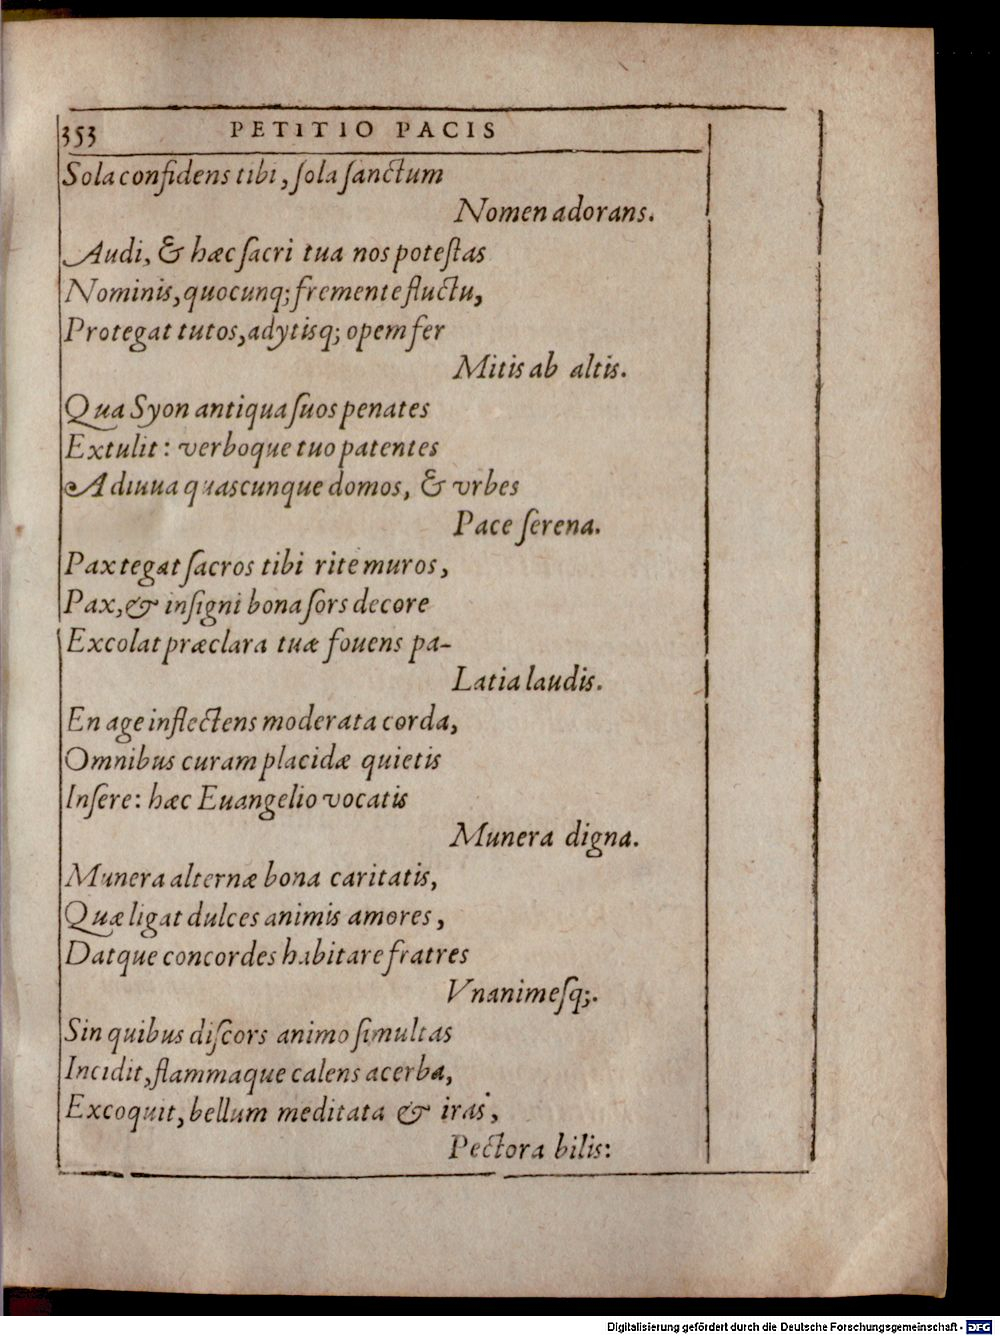 353 PETITIO PACIS
Sola confidens tibi, ſola ſanctum
Nomen adorans.
Audi, & hæc ſacri tua nos poteſtas
Nominis, quocunq; fremente fluctu,
Protegat tutos, adytisq; opem fer
Mitis ab altis.
Qua Syon antiqua ſuos penates
Extulit: verboque tuo patentes
Adiuua quascunque domos, & vrbes
Pace ſerena.
Pax tegat ſacros tibi rite muros,
Pax, & inſigni bona ſors decore
Excolat præclara tuæ fouens pa-
Latia laudis.
En age inflectens moderata corda,
Omnibus curam placidæ quietis
Inſere: hæc Euangelio vocatis
Munera digna.
Munera alternæ bona caritatis,
Quæ ligat dulces animis amores,
Datque concordes habitare fratres
Vnanimeſq;.
Sin quibus diſcors animo ſimultas
Incidit, flammaque calens acerba,
Excoquit, bellum meditata & iras,
Pectora bilis:
Digitalisierung gefördert durch die Deutsche Forschungsgemeinschaft - DFG